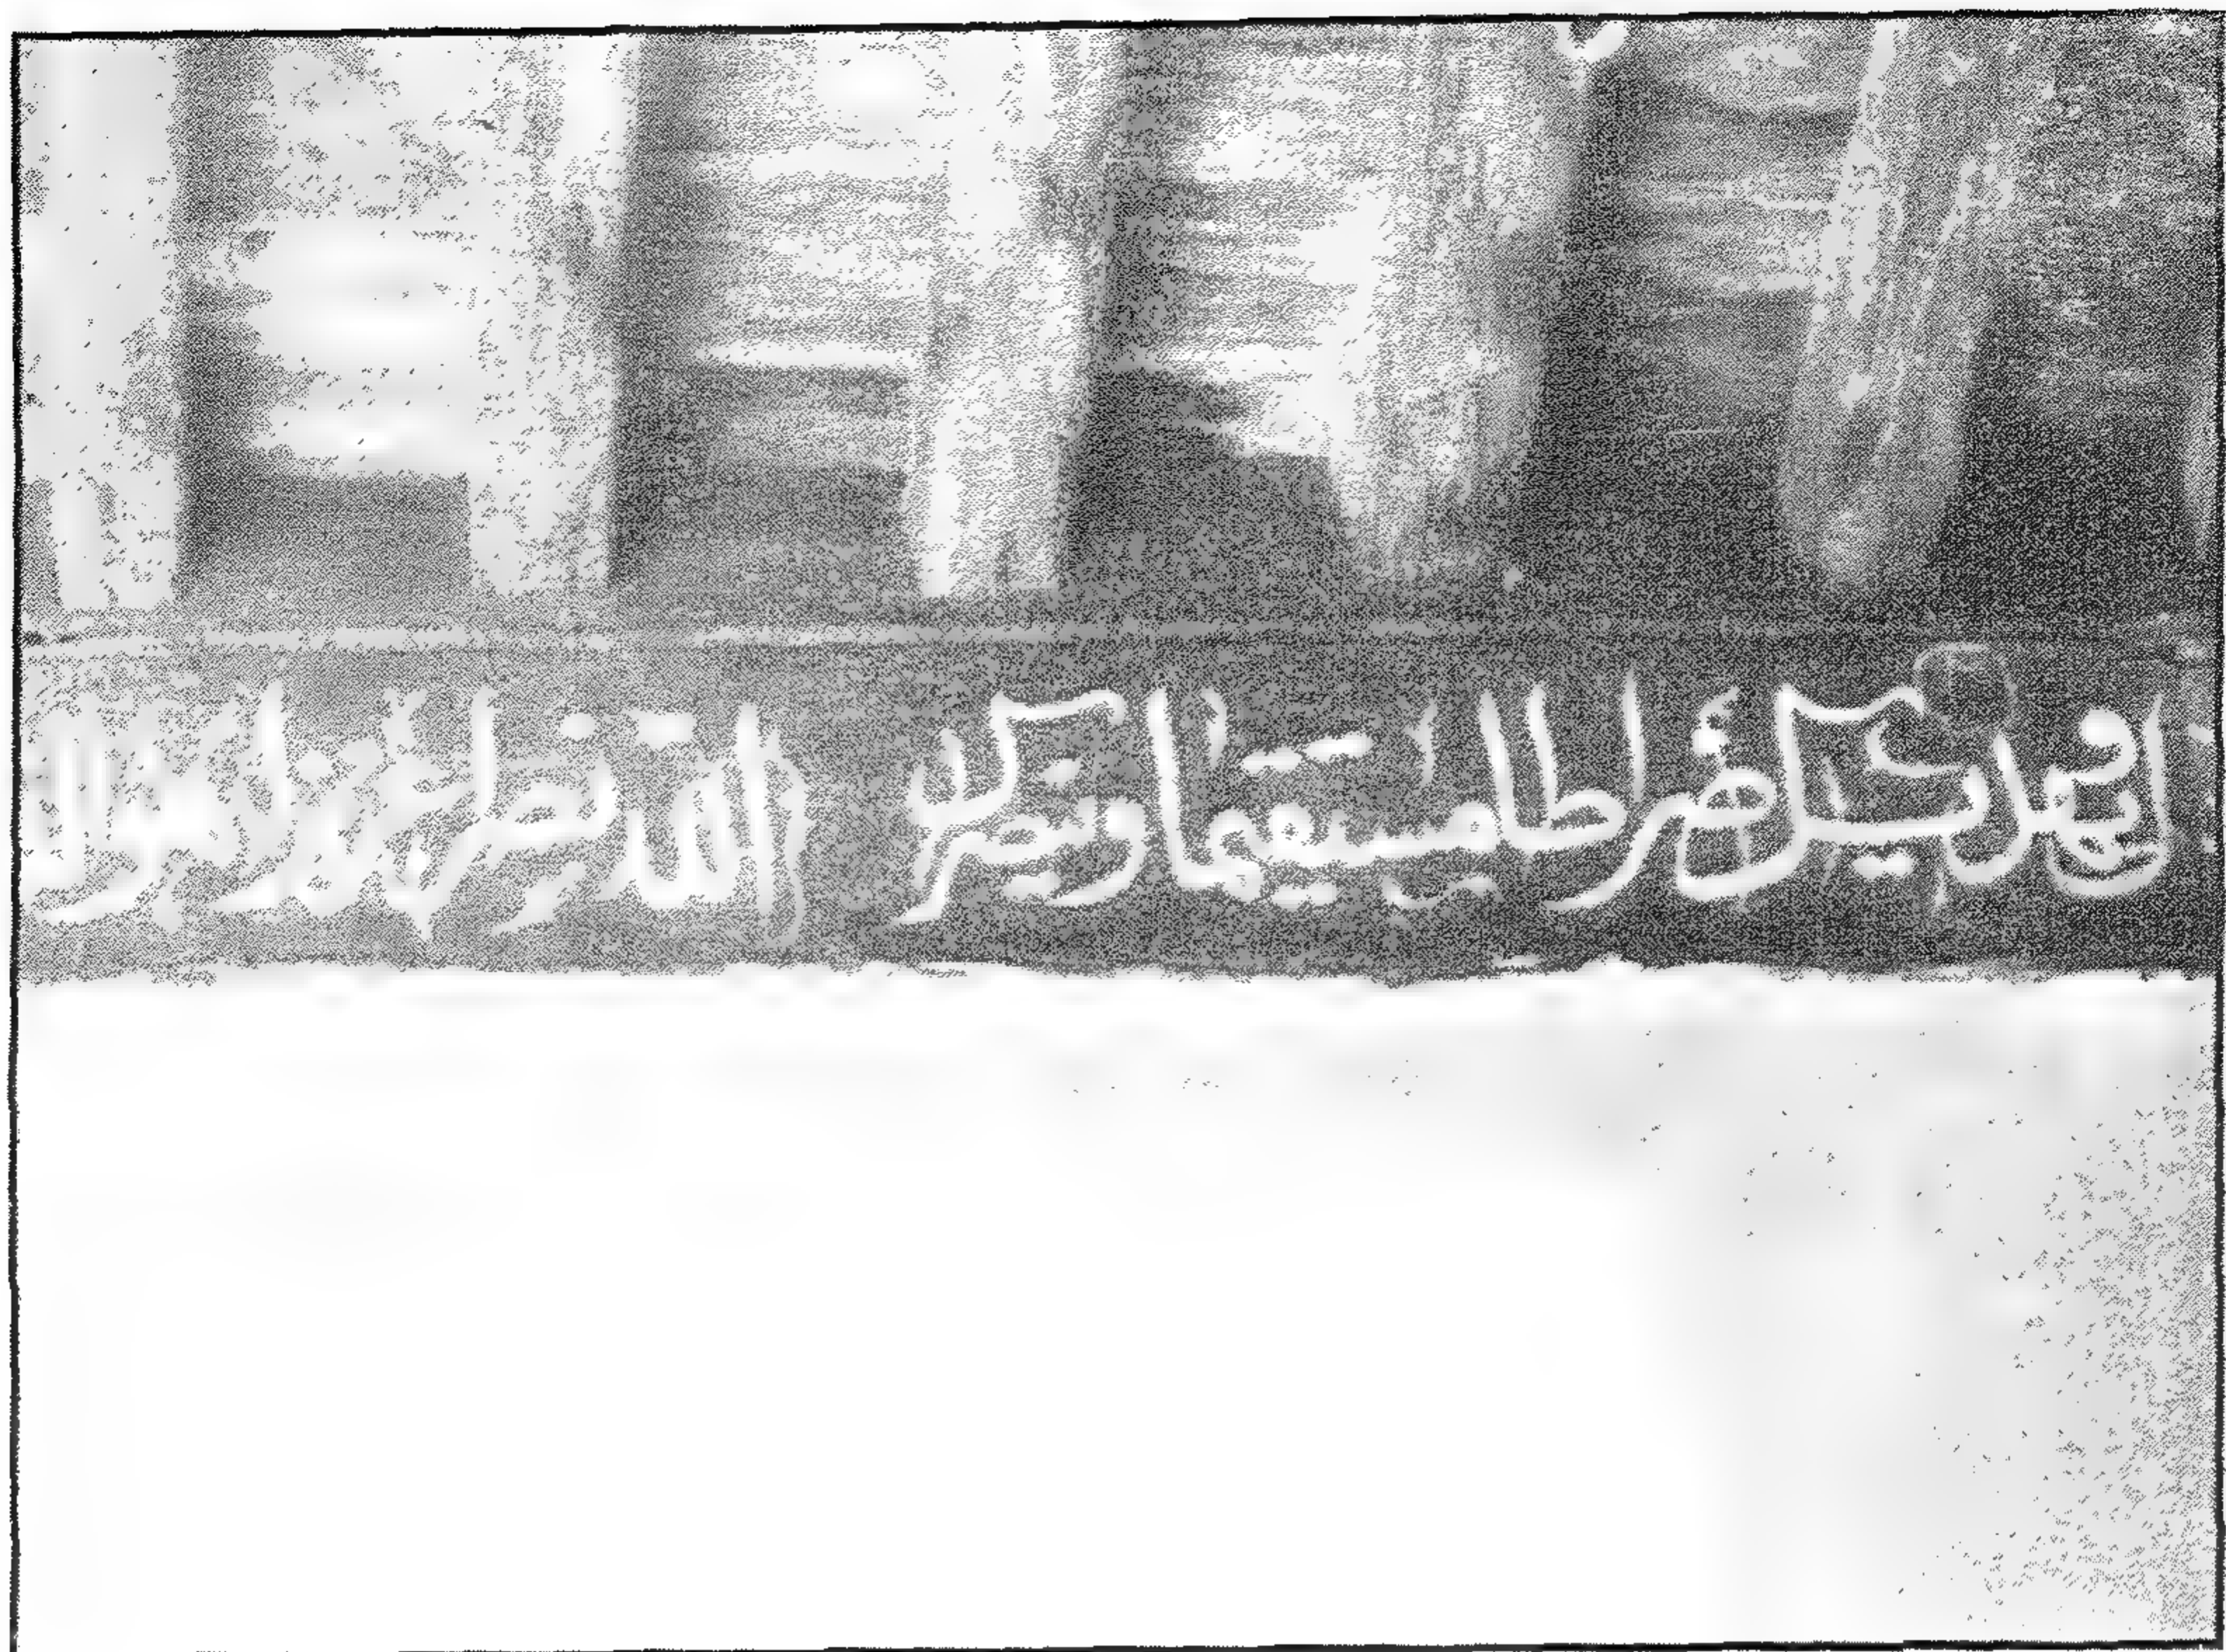 ويهديك صراطا مستقيما وينصرك الله نصرا عزيزا